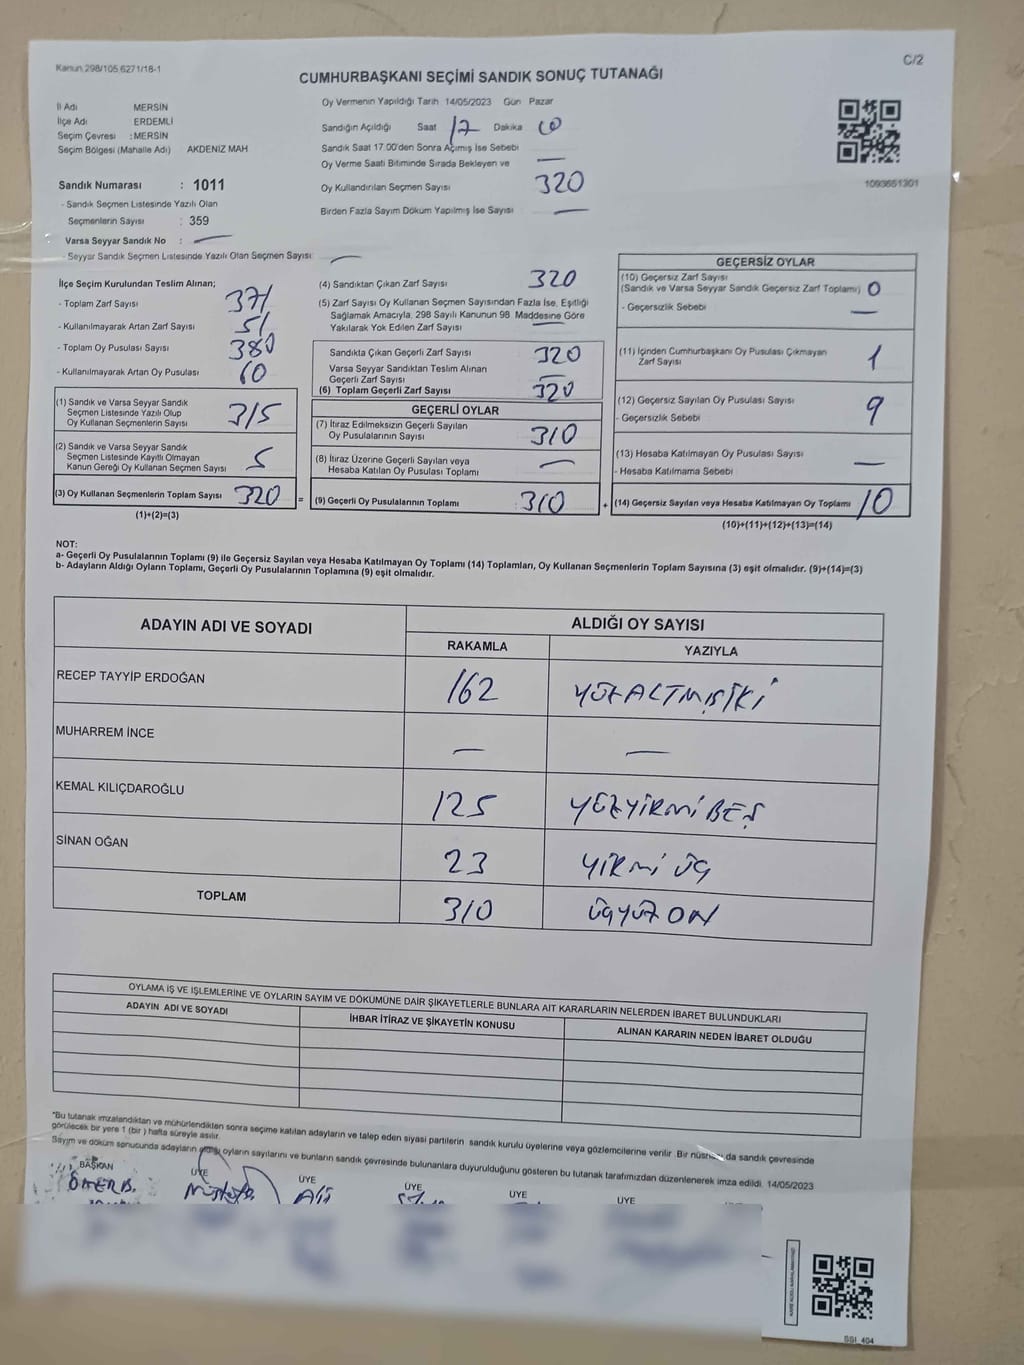 Kanun 298/105 6271/18-1
C/2
CUMHURBAŞKANI SEÇİMİ SANDIK SONUÇ TUTANAĞI
İl Adı MERSİN
İlçe Adı ERDEMLİ
Seçim Çevresi : MERSİN
Seçim Bölgesi (Mahalle Adı) AKDENİZ MAH
Oy Vermenin Yapıldığı Tarih 14/05/2023 Gün Pazar
Sandığın Açıldığı Saat 17 Dakika 00
Sandık Saat 17.00'den Sonra Açımış İse Sebebi
Oy Verme Saati Bitiminde Sırada Bekleyen ve —
Oy Kullandırılan Seçmen Sayısı 320
Birden Fazla Sayım Döküm Yapılmış İse Sayısı —
1093651301
Sandık Numarası : 1011
- Sandık Seçmen Listesinde Yazılı Olan
Seçmenlerin Sayısı : 359
Varsa Seyyar Sandık No : —
- Seyyar Sandık Seçmen Listesinde Yazılı Olan Seçmen Sayısı: —
İlçe Seçim Kurulundan Teslim Alınan;
- Toplam Zarf Sayısı 371
- Kullanılmayarak Artan Zarf Sayısı 51
- Toplam Oy Pusulası Sayısı 380
- Kullanılmayarak Artan Oy Pusulası 60
(1) Sandık ve Varsa Seyyar Sandık
Seçmen Listesinde Yazılı Olup
Oy Kullanan Seçmenlerin Sayısı 315
(2) Sandık ve Varsa Seyyar Sandık
Seçmen Listesinde Kayıtlı Olmayan
Kanun Gereği Oy Kullanan Seçmen Sayısı 5
(3) Oy Kullanan Seçmenlerin Toplam Sayısı 320 =
(1)+(2)=(3)
(4) Sandıktan Çıkan Zarf Sayısı 320
(5) Zarf Sayısı Oy Kullanan Seçmen Sayısından Fazla İse, Eşitliği
Sağlamak Amacıyla, 298 Sayılı Kanunun 98. Maddesine Göre
Yakılarak Yok Edilen Zarf Sayısı —
Sandıkta Çıkan Geçerli Zarf Sayısı 320
Varsa Seyyar Sandıktan Teslim Alınan
Geçerli Zarf Sayısı —
(6) Toplam Geçerli Zarf Sayısı 320
GEÇERLİ OYLAR
(7) İtiraz Edilmeksizin Geçerli Sayılan
Oy Pusulalarının Sayısı 310
(8) İtiraz Üzerine Geçerli Sayılan veya
Hesaba Katılan Oy Pusulası Toplamı —
(9) Geçerli Oy Pusulalarının Toplamı 310 +
GEÇERSİZ OYLAR
(10) Geçersiz Zarf Sayısı
(Sandık ve Varsa Seyyar Sandık Geçersiz Zarf Toplamı) 0
- Geçersizlik Sebebi —
(11) İçinden Cumhurbaşkanı Oy Pusulası Çıkmayan
Zarf Sayısı 1
(12) Geçersiz Sayılan Oy Pusulası Sayısı 9
- Geçersizlik Sebebi
(13) Hesaba Katılmayan Oy Pusulası Sayısı —
- Hesaba Katılmama Sebebi
(14) Geçersiz Sayılan veya Hesaba Katılmayan Oy Toplamı 10
(10)+(11)+(12)+(13)=(14)
NOT:
a- Geçerli Oy Pusulalarının Toplamı (9) ile Geçersiz Sayılan veya Hesaba Katılmayan Oy Toplamı (14) Toplamları, Oy Kullanan Seçmenlerin Toplam Sayısına (3) eşit olmalıdır. (9)+(14)=(3)
b- Adayların Aldığı Oyların Toplamı, Geçerli Oy Pusulalarının Toplamına (9) eşit olmalıdır.
ADAYIN ADI VE SOYADI ALDIĞI OY SAYISI
RAKAMLA YAZIYLA
RECEP TAYYİP ERDOĞAN 162 YÜZALTMIŞİKİ
MUHARREM İNCE — —
KEMAL KILIÇDAROĞLU 125 YÜZYİRMİBEŞ
SİNAN OĞAN 23 YİRMİ ÜÇ
TOPLAM 310 ÜÇYÜZ ON
OYLAMA İŞ VE İŞLEMLERİNE VE OYLARIN SAYIM VE DÖKÜMÜNE DAİR ŞİKAYETLERLE BUNLARA AİT KARARLARIN NELERDEN İBARET BULUNDUKLARI
ADAYIN ADI VE SOYADI İHBAR İTİRAZ VE ŞİKAYETİN KONUSU ALINAN KARARIN NEDEN İBARET OLDUĞU
*Bu tutanak imzalandıktan ve mühürlendikten sonra seçime katılan adayların ve talep eden siyasi partilerin sandık kurulu üyelerine veya gözlemcilerine verilir. Bir nüshası da sandık çevresinde
görülecek bir yere 1 (bir) hafta süreyle asılır.
Sayım ve döküm sonucunda adayların aldığı oyların sayılarını ve bunların sandık çevresinde bulunanlara duyurulduğunu gösteren bu tutanak tarafımızdan düzenlenerek imza edildi. 14/05/2023
BAŞKAN ÜYE ÜYE ÜYE ÜYE ÜYE
ÖMER B. Mustafa Ali
SSI_404